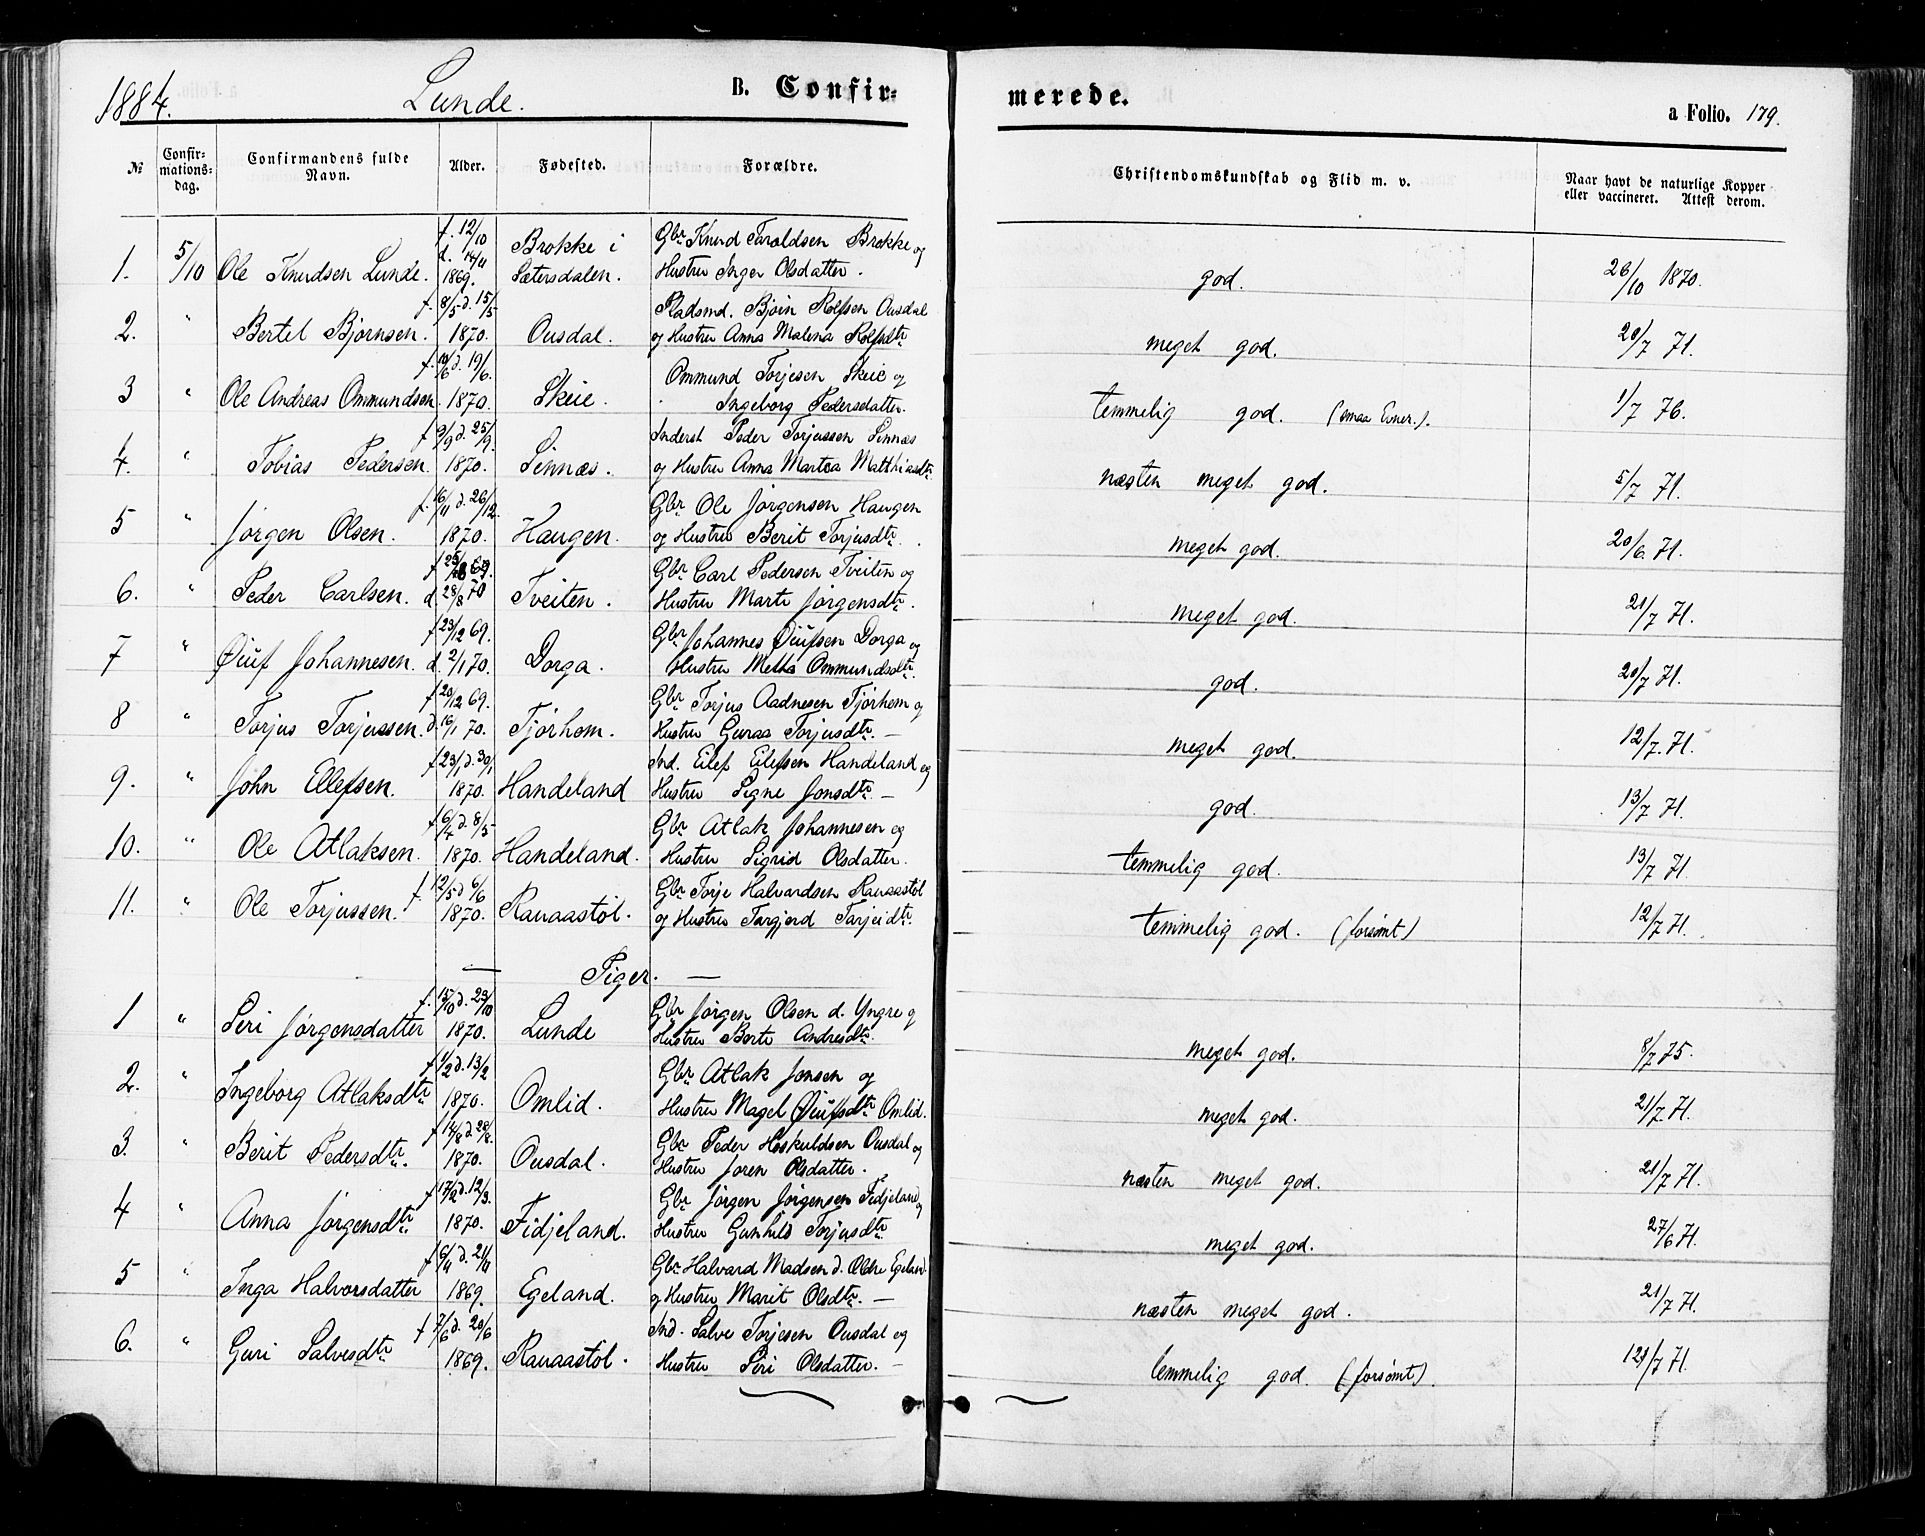 1884. Lunde. B. Confirmerede. a Folio. 179.
№ Confirmationsdag. Confirmandens fulde Navn. Alder. Fødested. Forældre. Christendomskundskab og Flid m. v. Naar havt de naturlige Kopper eller vaccineret. Attest derom.
f. 12/10 Gbr Knud Taraldsen Brokke og
d. 14/11 Brokke i
1. 5/10 Ole Knudsen Lunde. 1869. Sætersdalen. Hustru Inger Olsdatter. god. 26/10 1870.
f. 8/5 d. 15/5 Pladsmd. Bjørn Rolfsen Ousdal
2. " Bertel Bjørnsen. 1870. Ousdal. og Hustru Anna Malena Rolfsdtr meget god. 20/7 71.
f. d. 19/6. Ommund Torjesen Skeie og
3 " Ole Andreas Ommundsen. 1870. Skeie. Ingeborg Pedersdatter. temmelig god. (smaa Evner.). 1/7 76.
f 9/9 d. 25/9. Inderst Peder Torjussen Sinnæs
4. " Tobias Pedersen. 1870. Sinnæs. og Hustru Anna Martea Matthiasdtr næsten meget god. 5/7 71.
f. 16/11 d. 26/12. Gbr Ole Jørgensen Haugen
5 " Jørgen Olsen. 1870. Haugen. og Hustru Berit Torjusdtr. meget god. 20/6. 71.
f 69. Gbr Carl Pedersen Tveiten og
6. " Peder Carlsen. d. 28/8 70 Tveiten. Hustru Marte Jørgensdtr. meget god. 21/7 71.
f 23/12 69. Gbr Johannes Øiufsen Dorga og
7 " Øiuf Johannesen. d. 2/1 70. Dorga. Hustru Metha Ommundsdtr. god. 20/7 71.
f 20/12 69. Gbr Torjus Aadnesen Tjørhom og
8 " Torjus Torjussen. d. 16/1 70. Tjørhom. Hustru Guraa Torjusdtr. — meget god. 12/7. 71.
f 23/1 d. 30/1 Ind. Eilef Eilefsen Handeland og
9. " John Ellefsen. 1870. Handeland Hustru Signe Jonsdtr. — god. 13/7 71.
f 6/4 d. 8/5 Gbr Atlak Johannesen og
10. " Ole Atlaksen. 1870. Handeland. Hustru Sigrid Olsdatter. temmelig god. 13/7 71.
f 12/5 d 6/6 Gbr Torje Halvardsen Rauaastøl
11. " Ole Torjussen. 1870. Rauaastøl. og Hustru Torgjerd Tarjeidtr. temmelig god. (forsømt) 12/7 71.
— Piger. —
f. 15/10 d. 23/10 Gbr Jørgen Olsen d. Yngre og
1 " Siri Jørgensdatter 1870. Lunde Hustru Berte Andresdtr. meget god. 8/7 75.
f 1/2 d. 13/2 Gbr Atlak Jonsen og
2. " Ingeborg Atlaksdtr 1870. Omlid. Hustru Magel Øiufsdtr Omlid. meget god. 21/7. 71.
f 14/8 d. 28/8. Gbr Peder Hoskuldsen Ousdal og
3. " Berit Pedersdtr. 1870. Ousdal. Hustru Joren Olsdatter. næsten meget god. 21/7 71.
f 17/2 d. 12/3. Gbr Jørgen Jørgensen Fidjeland og
4 " Anna Jørgensdtr 1870. Fidjeland. Hustru Gunhild Torjusdtr. meget god. 27/6 71.
f 6/11 d. 21/11 Gbr Halvard Madsen d. Ældre Egeland
5 " Inga Halvorsdatter 1869. Egeland. og Hustru Marit Olsdtr. — næsten meget god. 21/7 71.
f 7/6 d. 20/6 Ind. Salve Torjesen Ousdal og
6. " Guri Salvesdtr 1869. Rauaastøl. Hustru Siri Olsdatter. — temmelig god. (forsømt). 12/7 71.